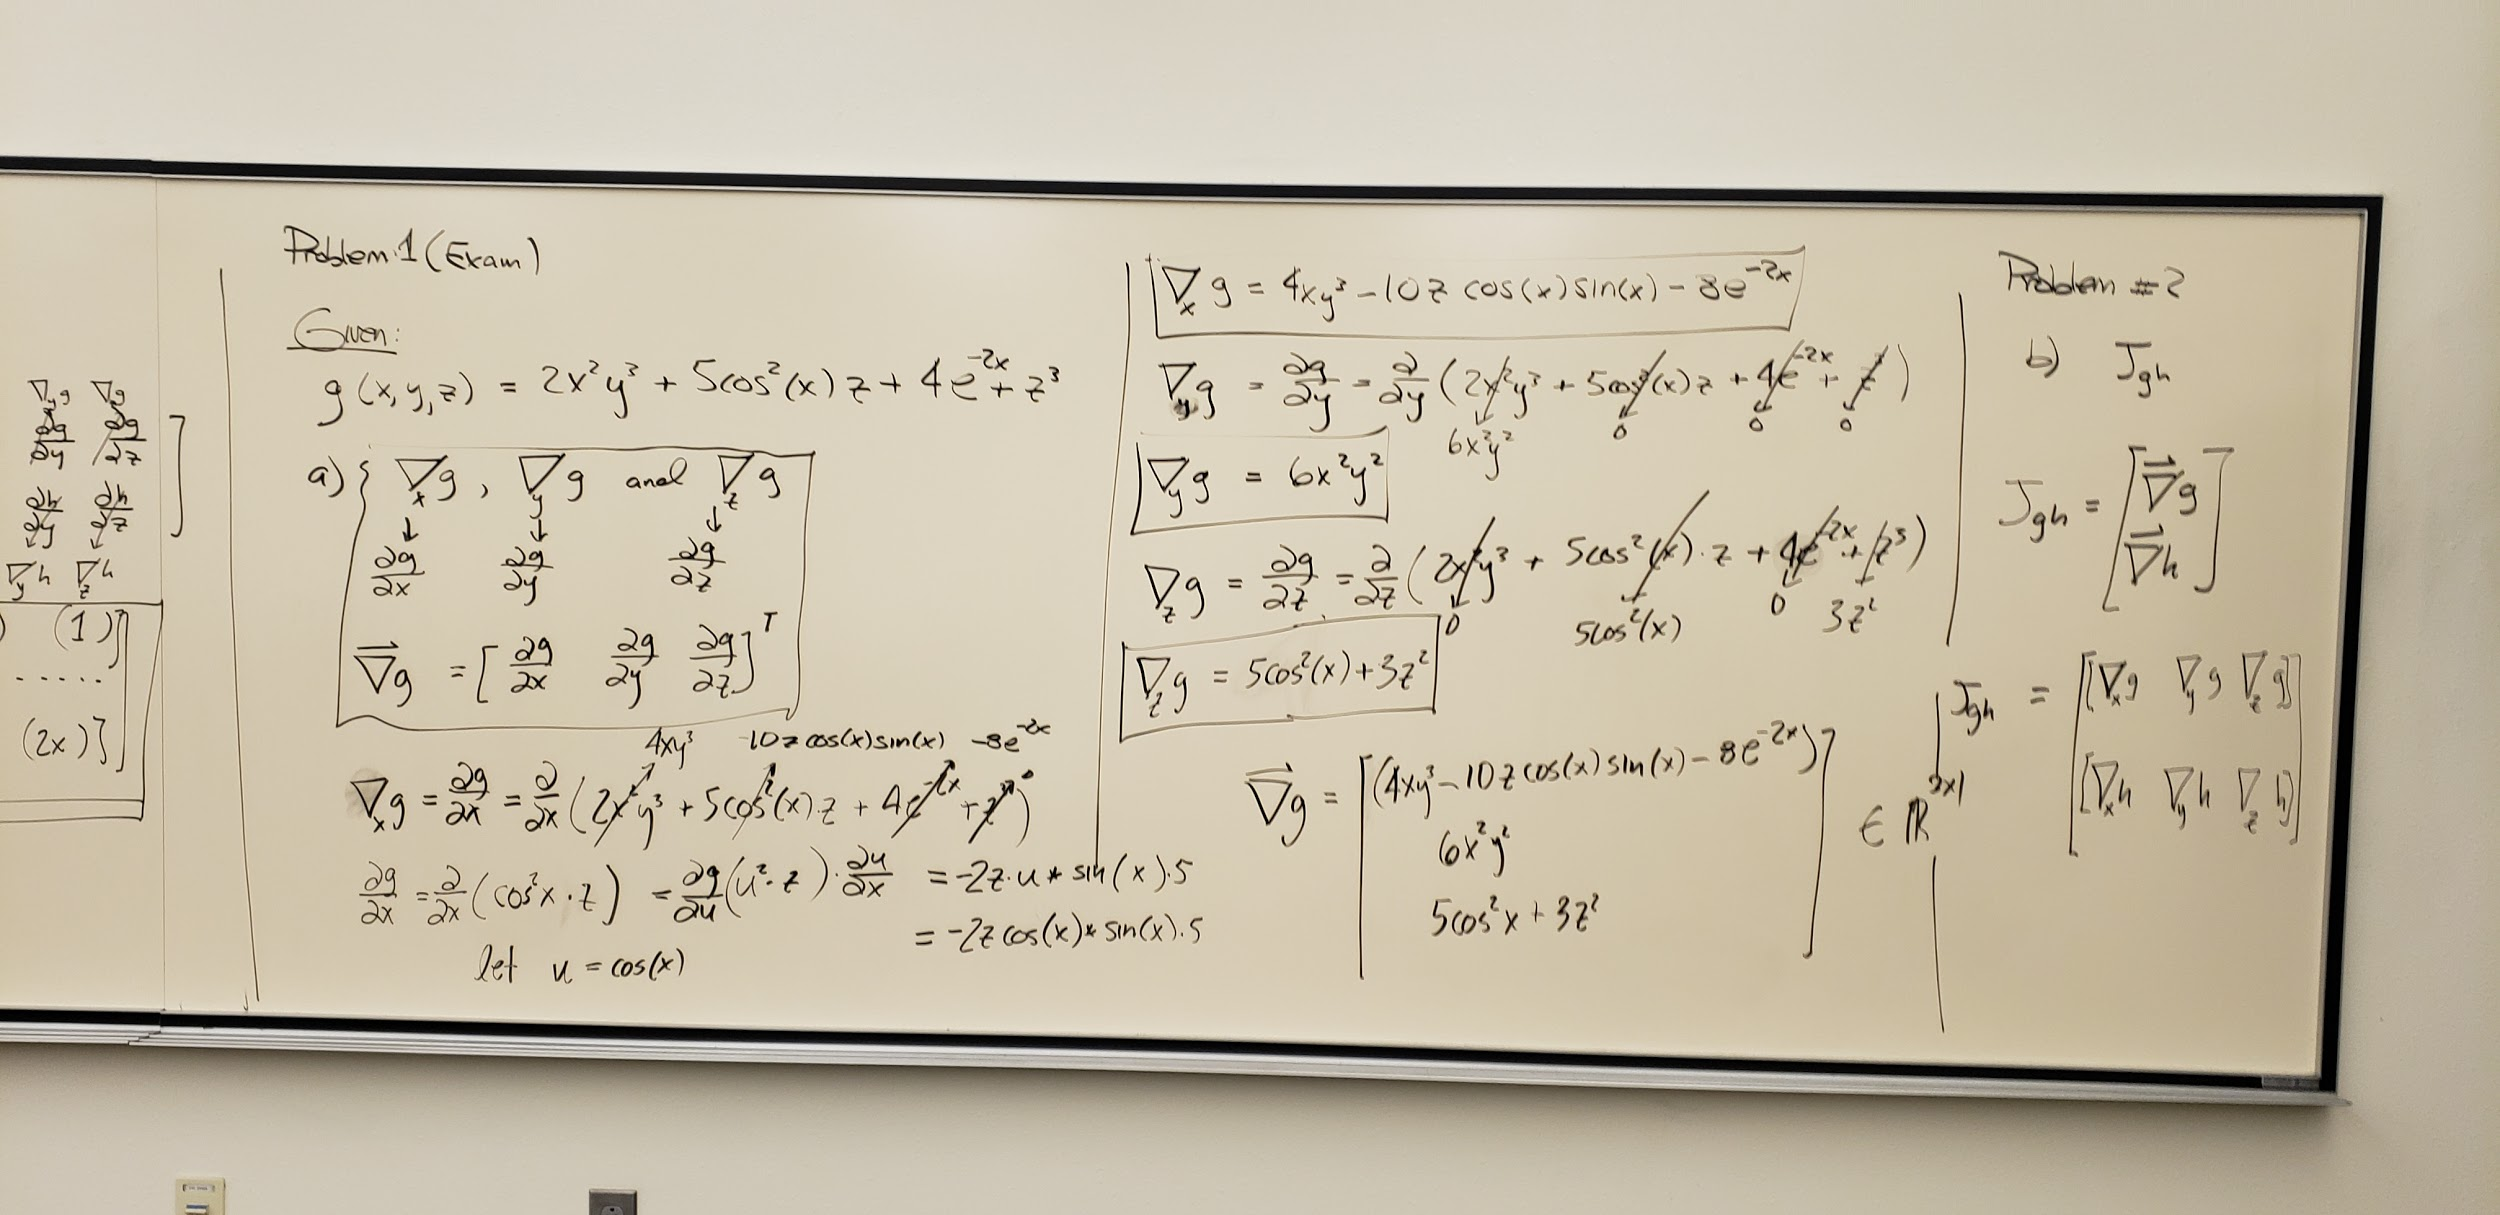 ∇_y g ∇_z g
∂g/∂y ∂g/∂z ]
∂h/∂y ∂h/∂z
∇_y h ∇_z h
) (1)]
.....
(2x)}]
Problem 1 (Exam)
Given:
g(x,y,z) = 2x²y³ + 5cos²(x) z + 4e^{-2x} + z³
a) { ∇_x g, ∇_y g and ∇_z g
↓ ↓ ↓
∂g/∂x ∂g/∂y ∂g/∂z
∇⃗g = [∂g/∂x ∂g/∂y ∂g/∂z]^T
4xy³ -10z cos(x)sin(x) -8e^{-2x}
∇_x g = ∂g/∂x = ∂/∂x (2x²y³ + 5cos²(x)z + 4e^{-2x} + z³)
∂g/∂x = ∂/∂x (cos²x · z) = ∂g/∂u (u² · z) · ∂u/∂x = -2z·u * sin(x)·5
= -2z cos(x) * sin(x)·5
let u = cos(x)
∇_x g = 4xy³ - 10z cos(x) sin(x) - 8e^{-2x}
∇_y g = ∂g/∂y = ∂/∂y (2x²y³ + 5cos²(x)z + 4e^{-2x} + z³)
6x²y² 0 0 0
∇_y g = 6x²y²
∇_z g = ∂g/∂z = ∂/∂z (2x²y³ + 5cos²(x)·z + 4e^{-2x} + z³)
0 5cos²(x) 0 3z²
∇_z g = 5cos²(x) + 3z²
∇⃗g = [(4xy³ - 10z cos(x) sin(x) - 8e^{-2x})]
6x²y² ∈ ℝ^{3x1}
5cos²x + 3z²
Problem #2
b) J_gh
J_gh = [∇⃗g
∇⃗h]
J_gh = [[∇_x g ∇_y g ∇_z g]
[∇_x h ∇_y h ∇_z h]]